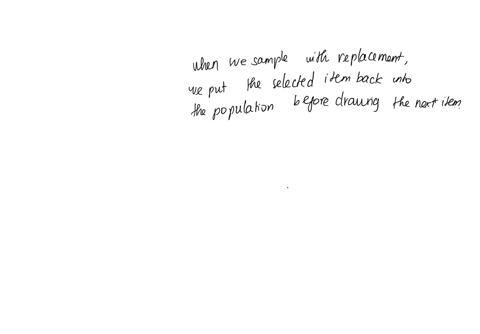 when we sample with replacement,
we put the selected item back into
the population before drawing the next item.